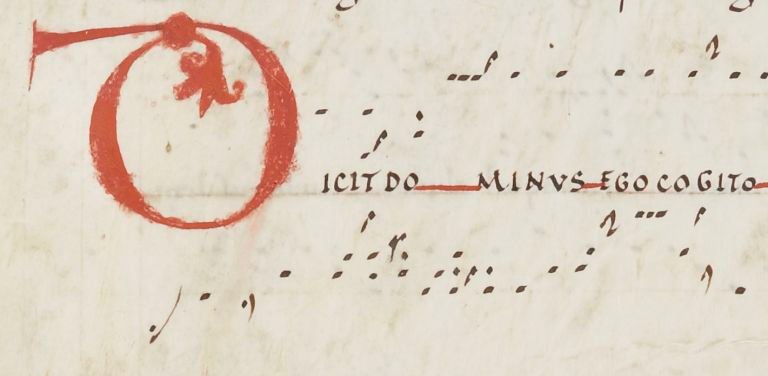 DICIT DOMINVS EGO COGITO